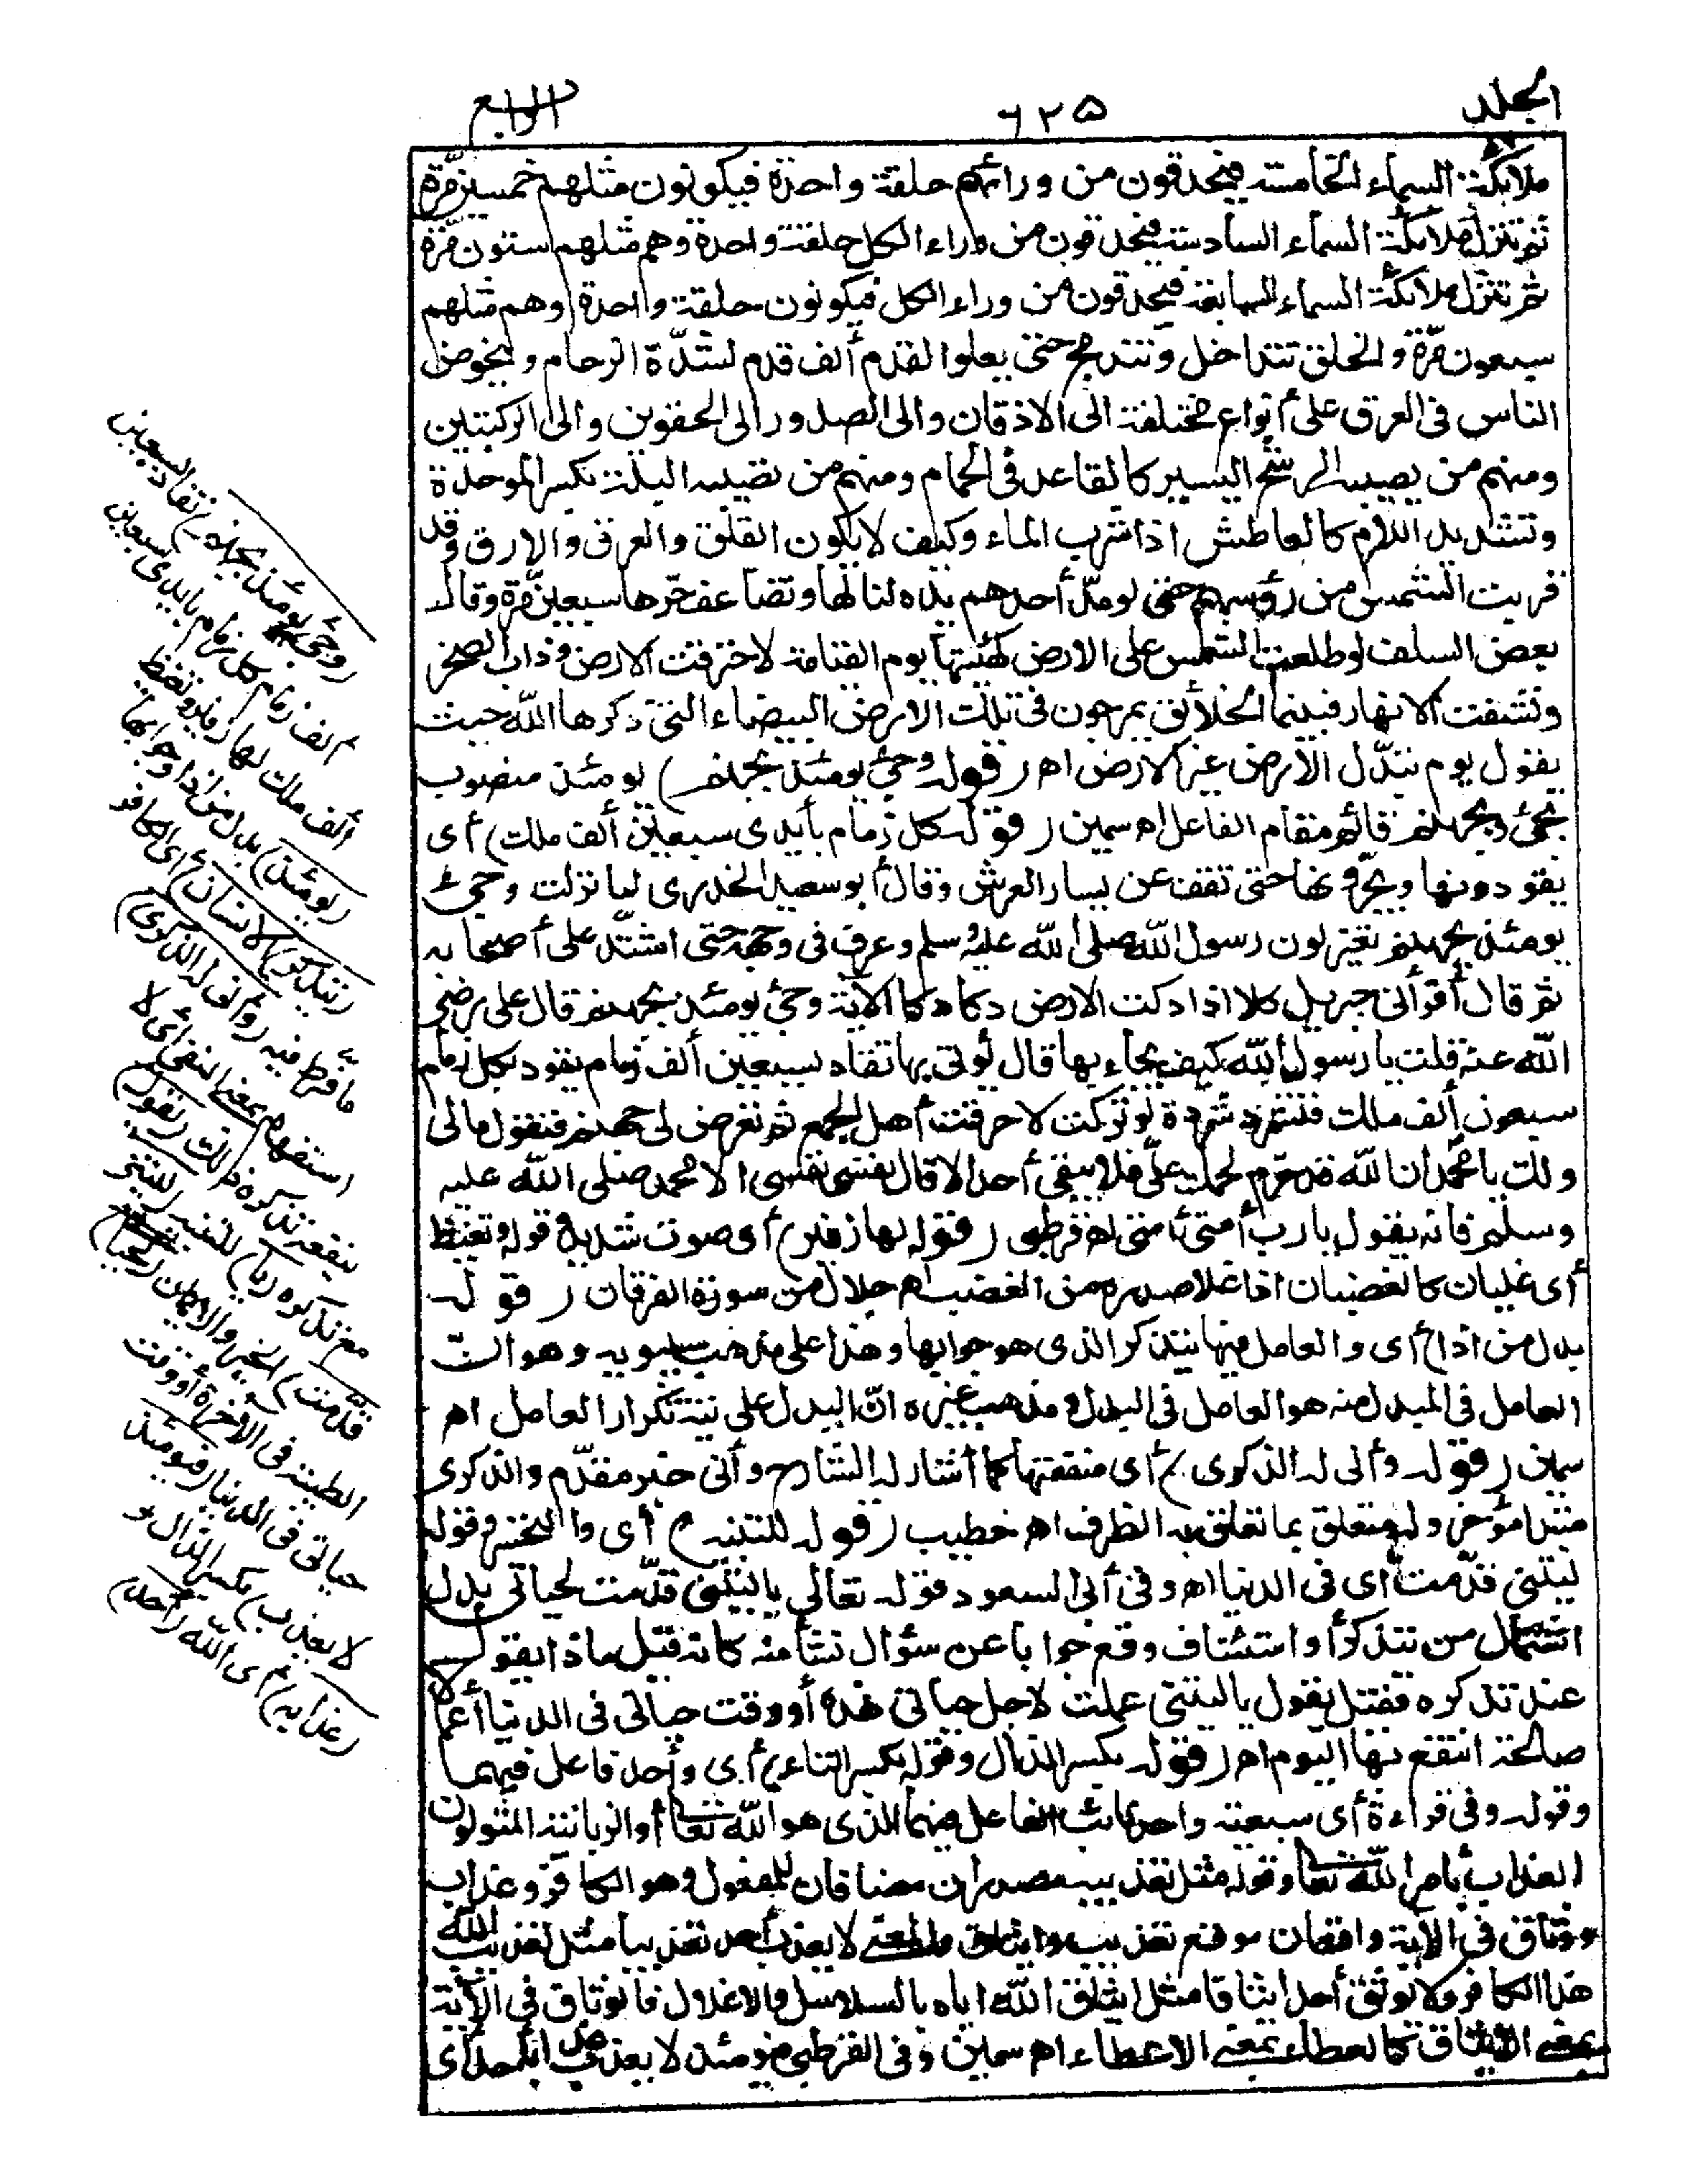 المجلد
٦٢٥
الرابع
ملائكة السماء الخامسة فيحدقون من ورائهم حلقة واحدة فيكونون مثلهم خمسين مرّة
ثم تنزل ملائكة السماء السادسة فيحدقون من وراء الكل حلقة واحدة وهم مثلهم ستون مرّة
ثم تنزل ملائكة السماء السابعة فيحدقون من وراء الكل فيكونون حلقة واحدة وهم مثلهم
سبعون مرّة والخلق تتداخل وتندمج حتى يعلوا القدم ألف قدم لشدّة الزحام ويخوض
الناس فى العرق على أنواع مختلفة الى الاذقان والى الصدور والى الحقوين والى الركبتين
ومنهم من يصيبه الرشح اليسير كالقاعد فى الحمام ومنهم من تصيبه البلة بكسر الموحدة
وتشديد اللام كالعاطش اذا شرب الماء وكيف لا يكون القلق والعرق والارق وقد
قربت الشمس من رؤسهم حتى لو مدّ أحدهم يده لنالها وتضاعف حرّها سبعين مرّة وقال
بعض السلف لو طلعت الشمس على الارض كهيئتها يوم القيامة لاحترقت الارض وذاب الصخر
ونشفت الانهار فبينما الخلائق يمرجون فى تلك الارض البيضاء التى ذكرها الله حيث
يقول يوم تبدّل الأرض غير الارض اهـ (قوله وجئ يومئذ بجهنم) يومئذ منصوب
بجئ وبجهنم قائم مقام الفاعل اهـ سمين (قوله كل زمام بأيدى سبعين ألف ملك) أى
يقودونها ويجرّونها حتى تقف عن يسار العرش وقال أبو سعيد الخدرى لما نزلت وجئ
يومئذ بجهنم تغير لون رسول الله صلى الله عليه وسلم وعرف فى وجهه حتى اشتدّ على أصحابه
ثم قال أقرأنى جبريل كلا اذا دكت الارض دكا دكا الآية وجئ يومئذ بجهنم قال على رضى
الله عنه قلت يا رسول الله كيف يجاء بها قال يؤتى بها تقاد بسبعين ألف زمام يقود بكل زمام
سبعون ألف ملك فتشرد شردة لو تركت لاحرقت أهل الجمع ثم تعرض لى جهنم فتقول مالى
ولك يا محمد ان الله قد حرّم لحمك علىّ فلا يبقى أحد الا قال نفسى نفسى الا محمد صلى الله عليه
وسلم فانه يقول يا رب أمتى أمتى اهـ قرطبى (قوله لها زفير) أى صوت شديد وقوله وتغيظ
أى غليان كالغضبان اذا غلا صدره من الغضب اهـ جلال من سورة الفرقان (قوله
بدل من اذا) أى والعامل فيها يتذكر الذى هو جوابها وهذا على مذهب سيبويه وهو انّ
العامل فى المبدل منه هو العامل فى البدل ومذهب غيره انّ البدل على نية تكرار العامل اهـ
سمين (قوله وأنى له الذكرى) أى منفعتها كما أشار له الشارح وأنى خبر مقدّم والذكرى
مبتدا مؤخر وله متعلق بما تعلق به الظرف اهـ خطيب (قوله للتنبيه) أى والتحسر وقوله
ليتنى قدّمت أى فى الدنيا اهـ وفى أبى السعود قوله تعالى يا ليتنى قدّمت لحياتى بدل
اشتمال من يتذكر أو استئناف وقع جوابا عن سؤال نشأ منه كأنه قيل ماذا يقول
عند تذكره فقيل يقول يا ليتنى عملت لاجل حياتى هذه أو وقت حياتى فى الدنيا أعمالا
صالحة انتفع بها اليوم اهـ (قوله بكسر الذال وقوله بكسر الثاء) أى وأحد فاعل فيهما
وقوله وفى قراءة أى سبعية واحد نائب الفاعل فيهما الذى هو الله تعالى أو الزبانية المتولون
العذاب بأمر الله تعالى وقوله مثل تعذيبه مصدران مضافان للمفعول وهو الكافر وعذاب
ووثاق فى الآية واقعان موقع تعذيب وايثاق والمعنى لا يعذب أحد تعذيبا مثل تعذيب الله
هذا الكافر ولا يوثق أحد ايثاقا مثل ايثاق الله اياه بالسلاسل والاغلال فالوثاق فى الآية
بمعنى الايثاق كالعطاء بمعنى الاعطاء اهـ سمين وفى القرطبى فيومئذ لا يعذب عذابه أحد أى
(وجئ يومئذ بجهنم) تقاد بسبعين
ألف زمام كل زمام بأيدى سبعين
ألف ملك لها زفير وتغيظ
(يومئذ) بدل من اذا وجوابها
(يتذكر الانسان) أى الكافر
ما فرّط فيه (وأنى له الذكرى)
استفهام بمعنى النفى أى لا
ينفعه تذكره ذلك (يقول)
مع تذكره (يا) للتنبيه (ليتنى
قدّمت) الخير والايمان (لحياتى)
الطيبة فى الآخرة أو وقت
حياتى فى الدنيا (فيومئذ
لا يعذب) بكسر الذال
(عذابه) أى الله (أحد)